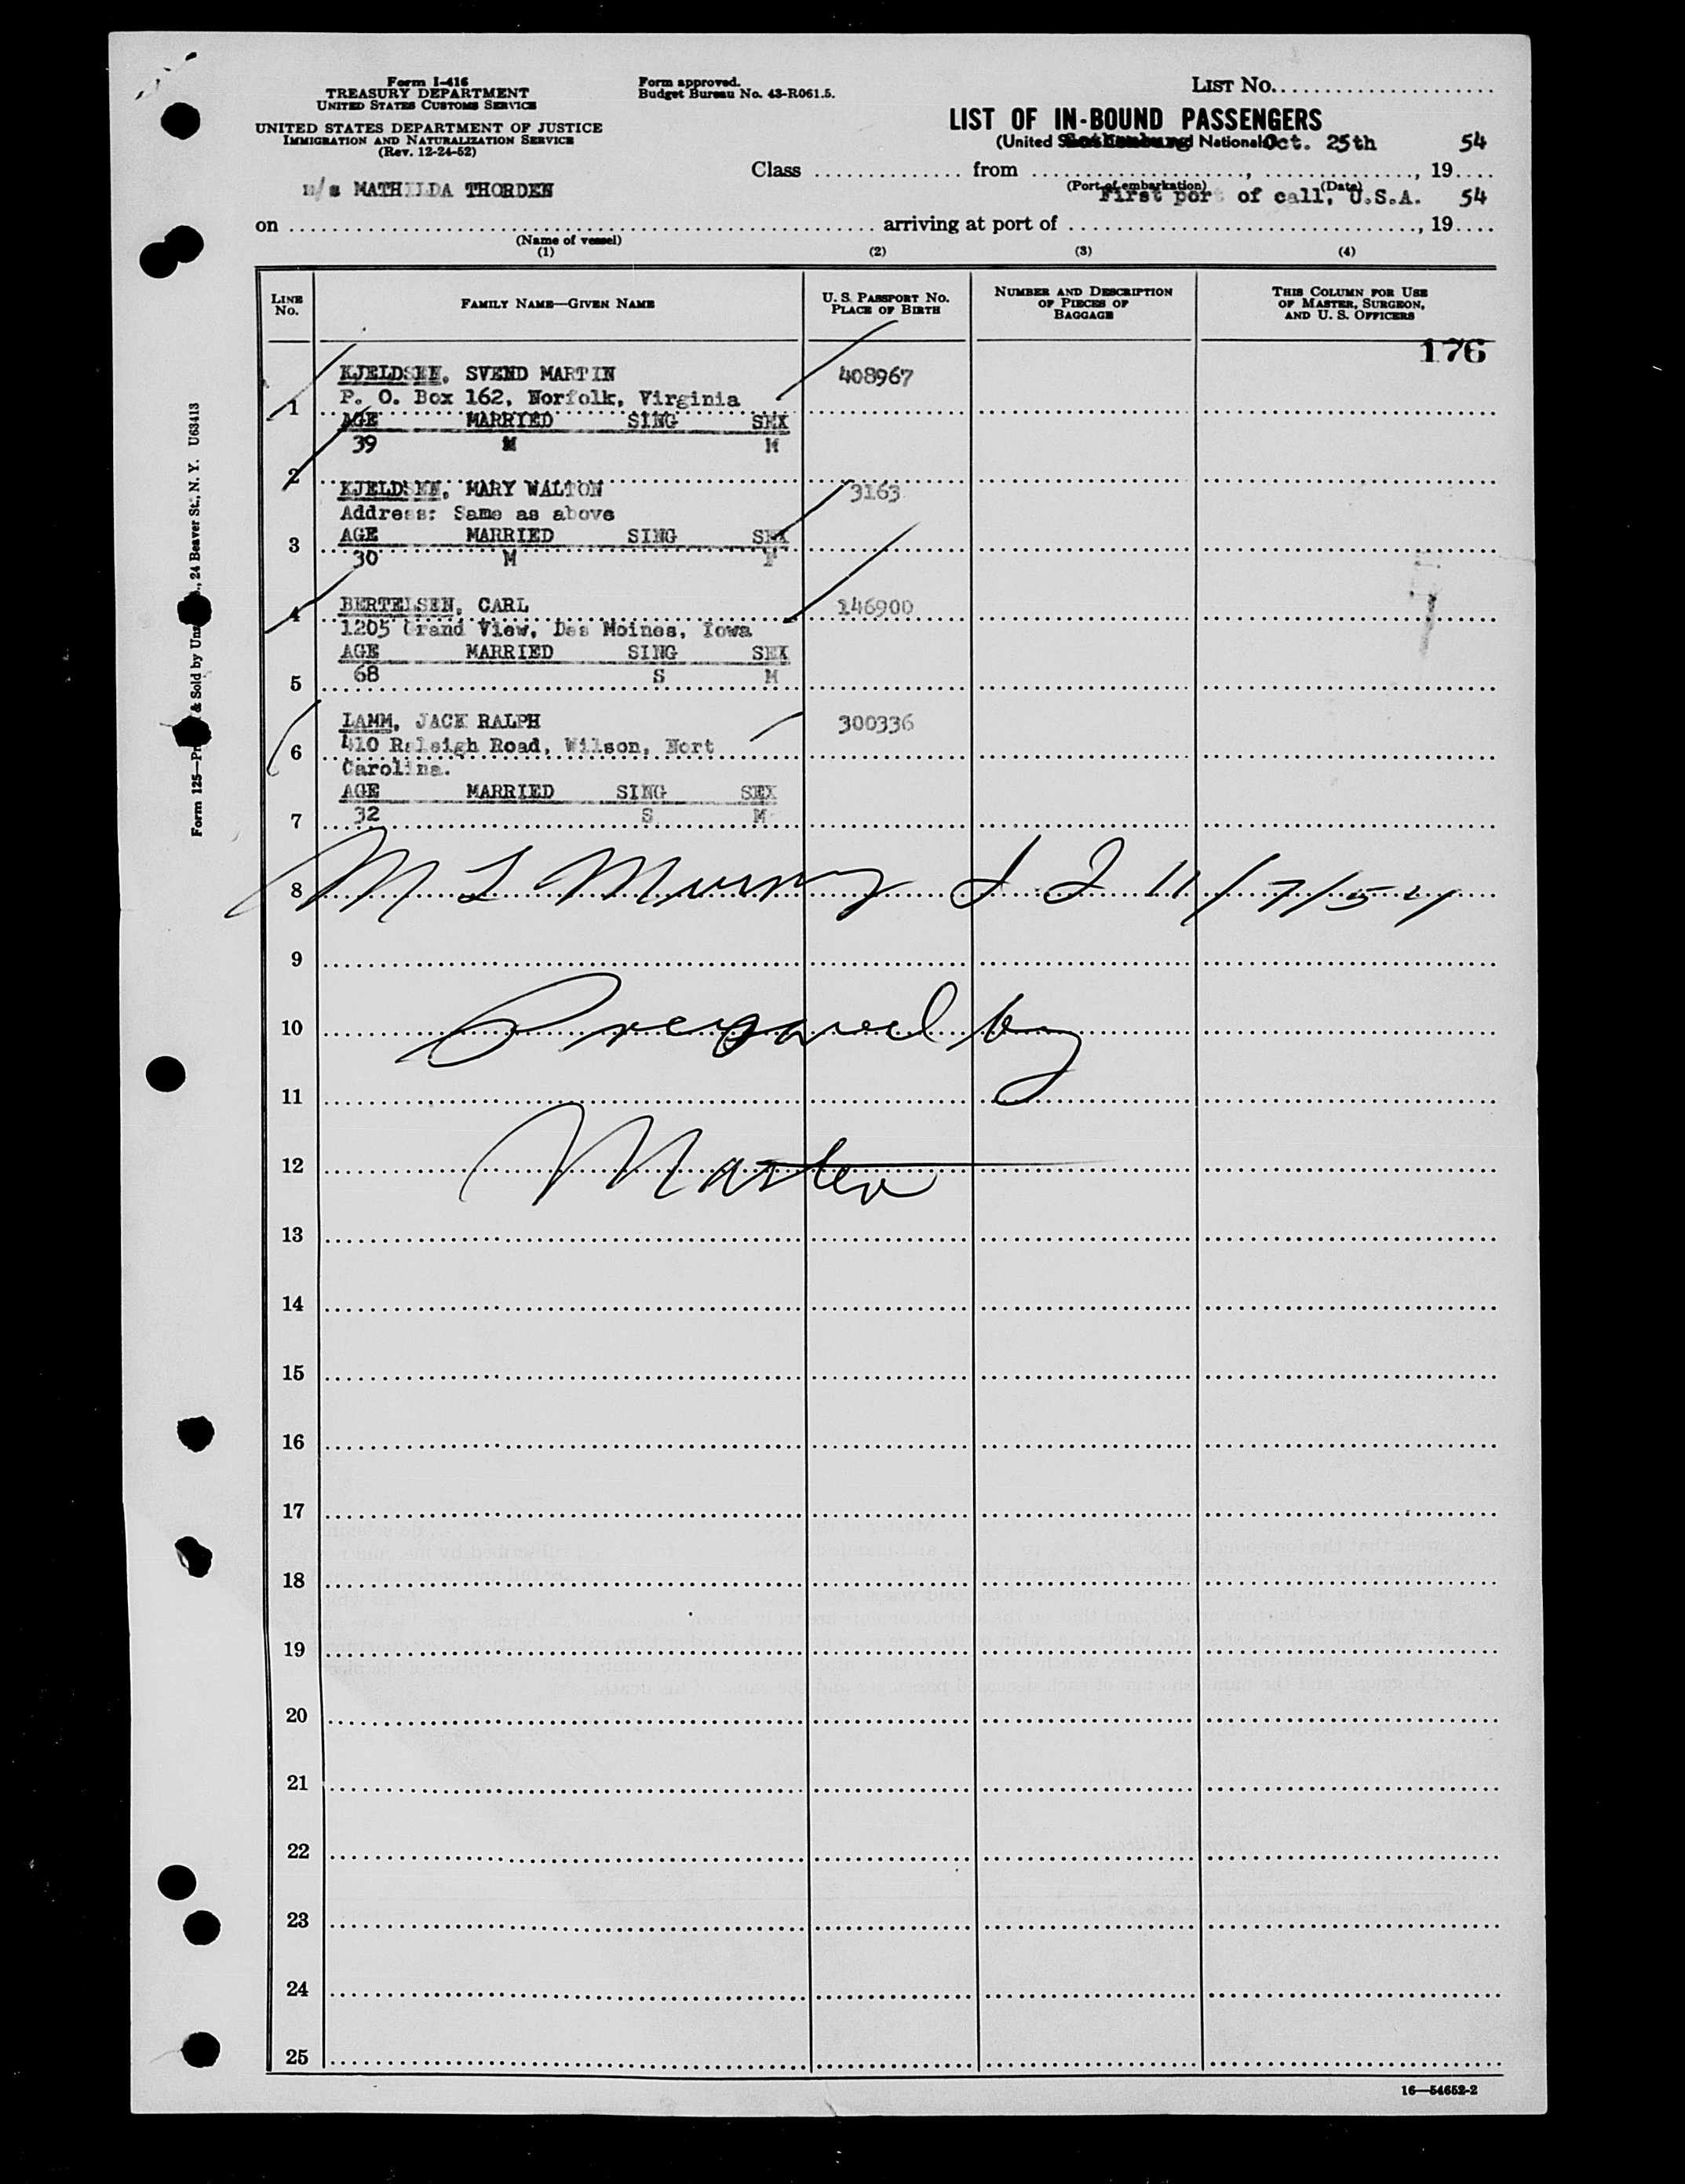 Form I-416
TREASURY DEPARTMENT
UNITED STATES CUSTOMS SERVICE
UNITED STATES DEPARTMENT OF JUSTICE
IMMIGRATION AND NATURALIZATION SERVICE
(Rev. 12-24-52)
Form approved.
Budget Bureau No. 43-R061.5.
LIST No.
LIST OF IN-BOUND PASSENGERS
(United S Gothenburg d National Oct. 25th 54
Class from , , 19
(Port of embarkation) (Date)
m/s MATHILDA THORDEN First port of call, U.S.A. 54
on arriving at port of , 19
(Name of vessel)
(1) (2) (3) (4)
LINE No. FAMILY NAME—GIVEN NAME U. S. PASSPORT No. PLACE OF BIRTH NUMBER AND DESCRIPTION OF PIECES OF BAGGAGE THIS COLUMN FOR USE OF MASTER, SURGEON, AND U. S. OFFICERS
176
KJELDSEN, SVEND MARTIN 408967
1 P. O. Box 162, Norfolk, Virginia
AGE MARRIED SING SEX
39 M M
2
KJELDSEN, MARY WALTON 3163
Address: Same as above
3 AGE MARRIED SING SEX
30 M F
4 BERTELSEN, CARL 146900
1205 Grand View, Des Moines, Iowa
AGE MARRIED SING SEX
5 68 S M
LAMM, JACK RALPH 300336
6 410 Raleigh Road, Wilson, Nort
Carolina.
AGE MARRIED SING SEX
7 32 S M
8 M L Murray I I 11/7/54
9
10 Prepared by
11
12 Master
13
14
15
16
17
18
19
20
21
22
23
24
25
16—54652-2
Form 125—Pr & Sold by Unz , 24 Beaver St., N. Y. U63413